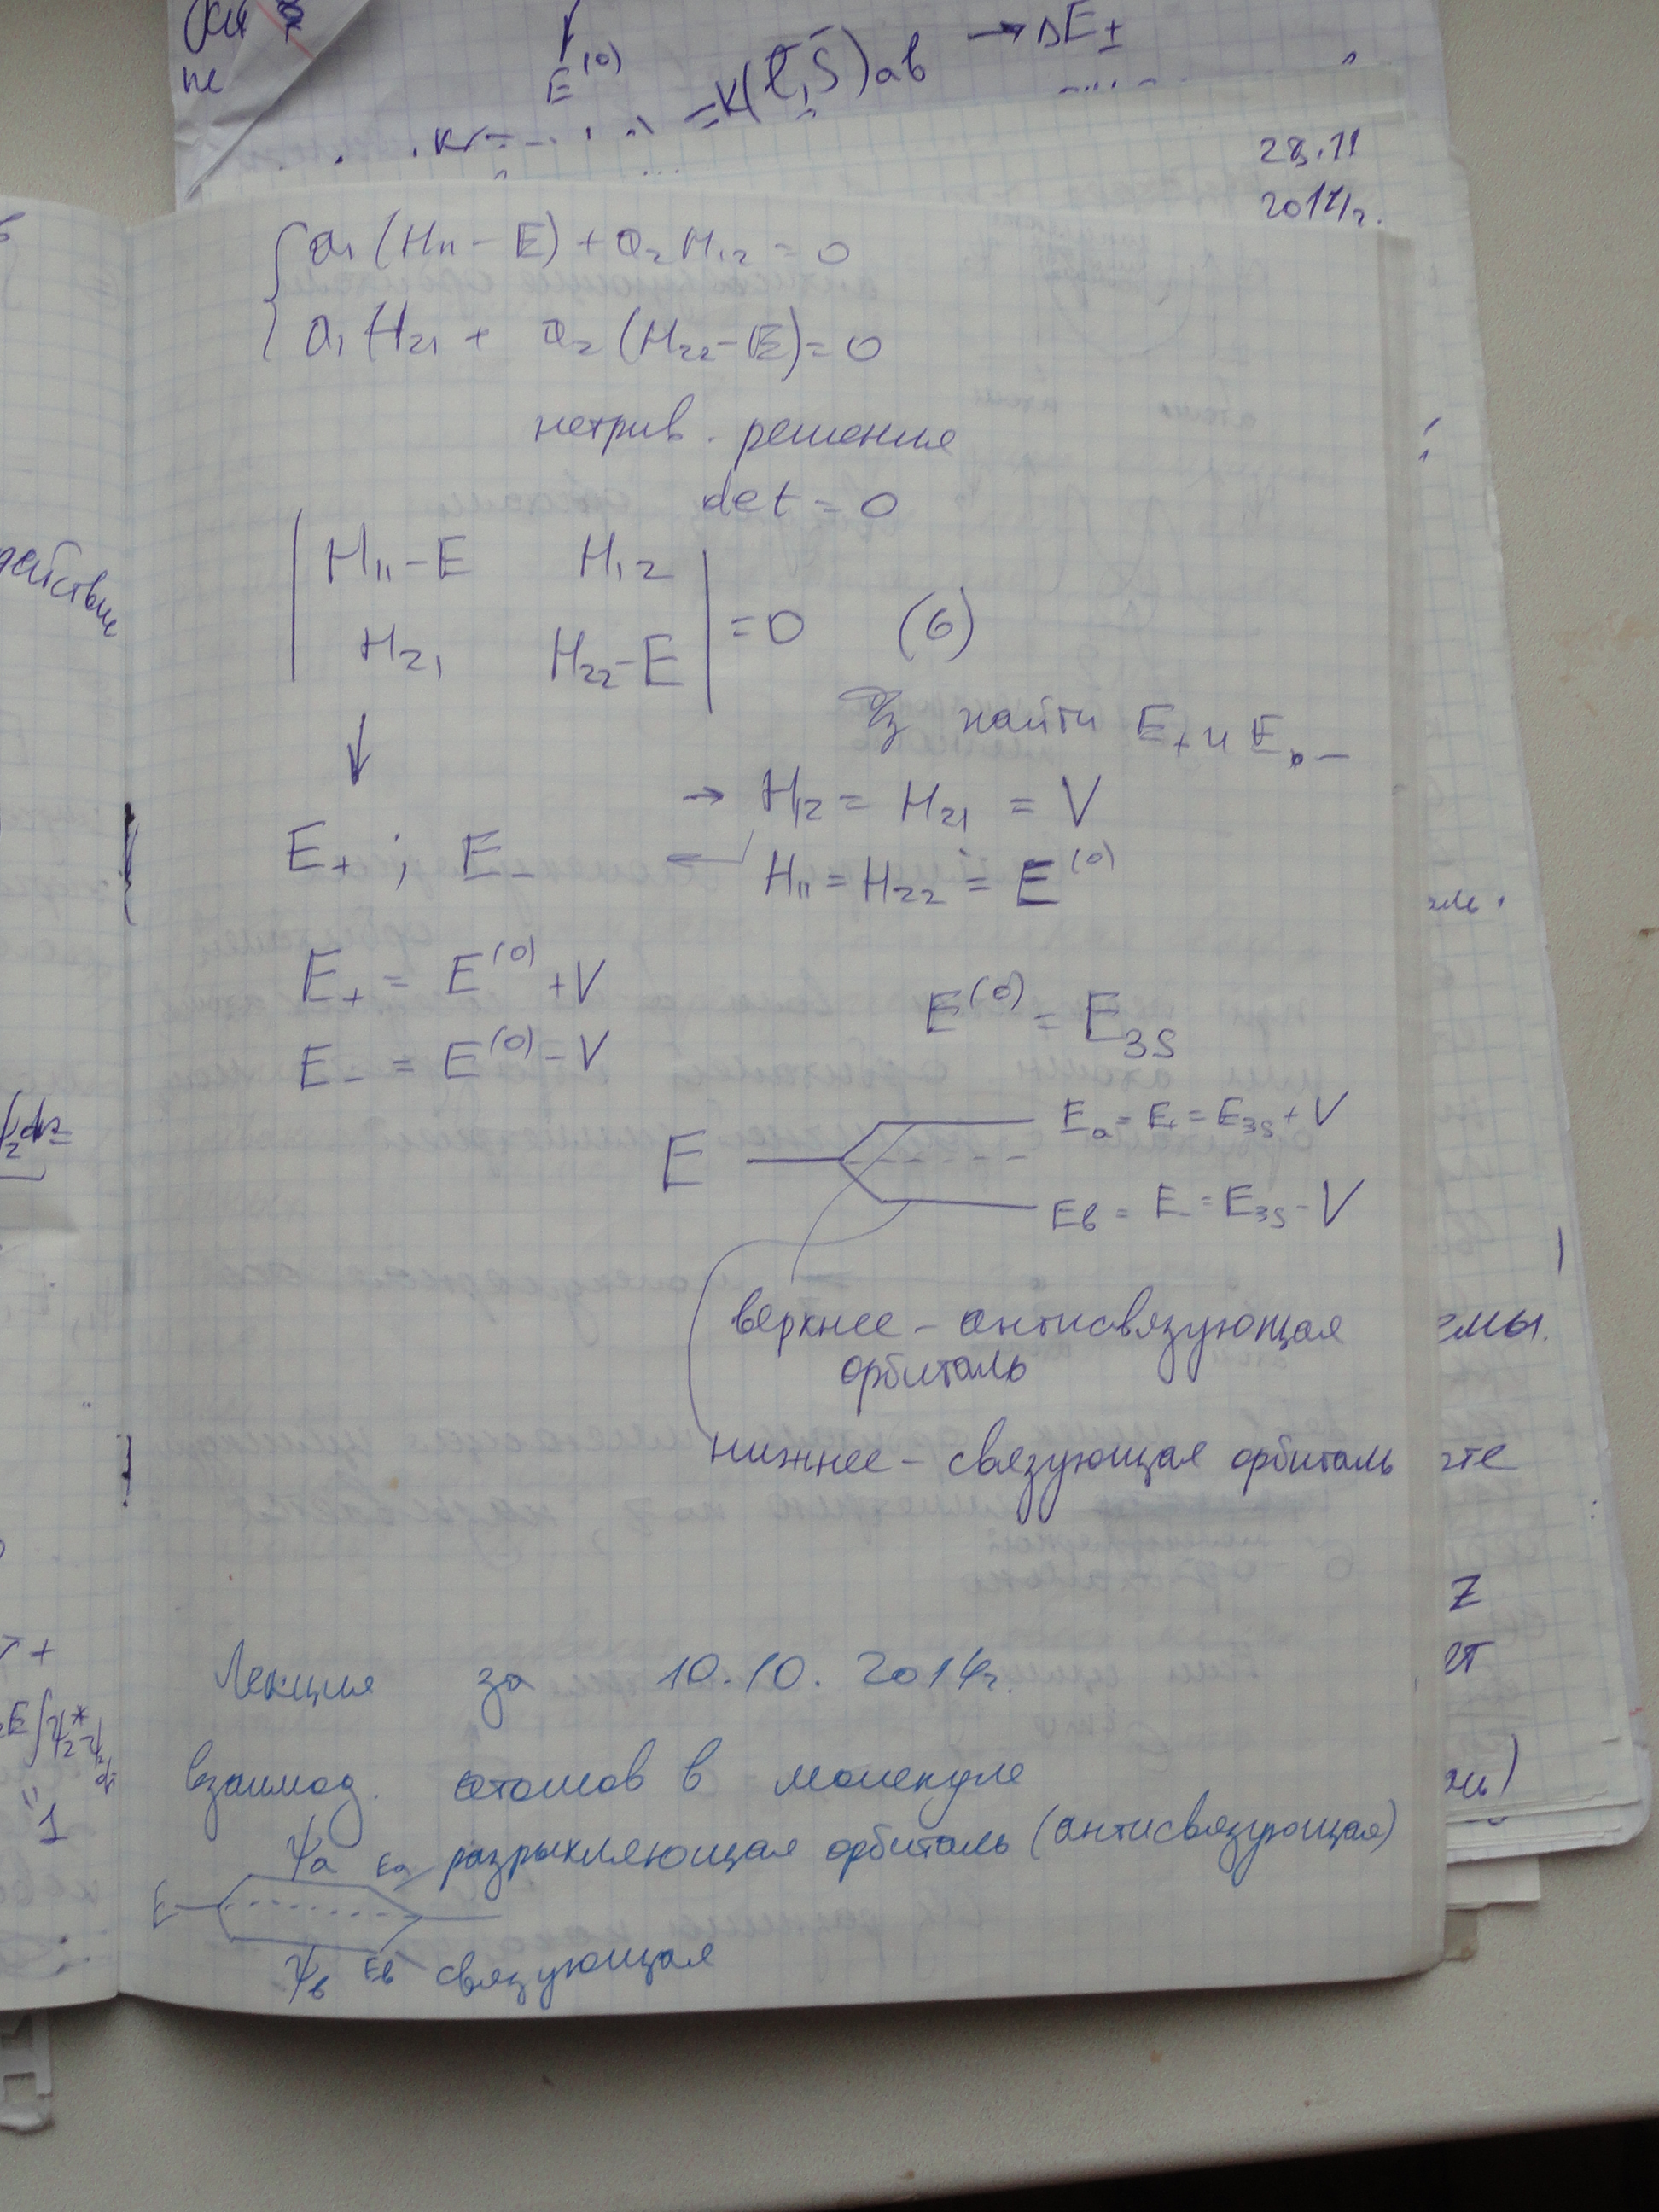 не
E⁽⁰⁾
→ ΔE±
28.11
2014г.
a₁(H₁₁ − E) + a₂H₁₂ = 0
a₁H₂₁ + a₂(H₂₂ − E) = 0
нетрив. решения
det = 0
| H₁₁ − E   H₁₂ |
| H₂₁   H₂₂ − E | = 0   (6)
Д/з найти E₊ и E₋
↓   → H₁₂ = H₂₁ = V
E₊ ; E₋ ← H₁₁ = H₂₂ = E⁽⁰⁾
E₊ = E⁽⁰⁾ + V
E⁽⁰⁾ = E₃S
E₋ = E⁽⁰⁾ − V
Eₐ = E₊ = E₃S + V
E
Eв = E₋ = E₃S − V
верхнее – антисвязующая
орбиталь
нижнее – связующая орбиталь
Лекция за 10.10.2014г.
взаимод. атомов в молекуле
ψₐ Eₐ разрыхляющая орбиталь (антисвязующая)
E
ψв Eв связующая
действие
емы.
Z